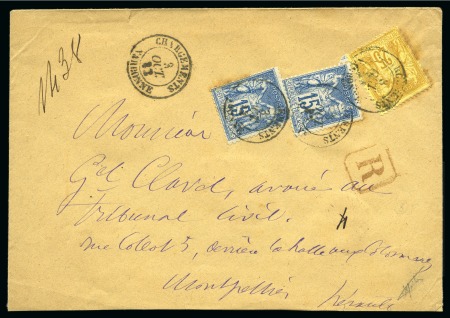 CHARGEMENTS
3
OCT
NARBONNE
N 38
15
15
25
R
Monsieur
Gel Clavel, avoué au
Tribunal Civil.
rue Collot 5, derrière la halle aux
Montpellier
Hérault